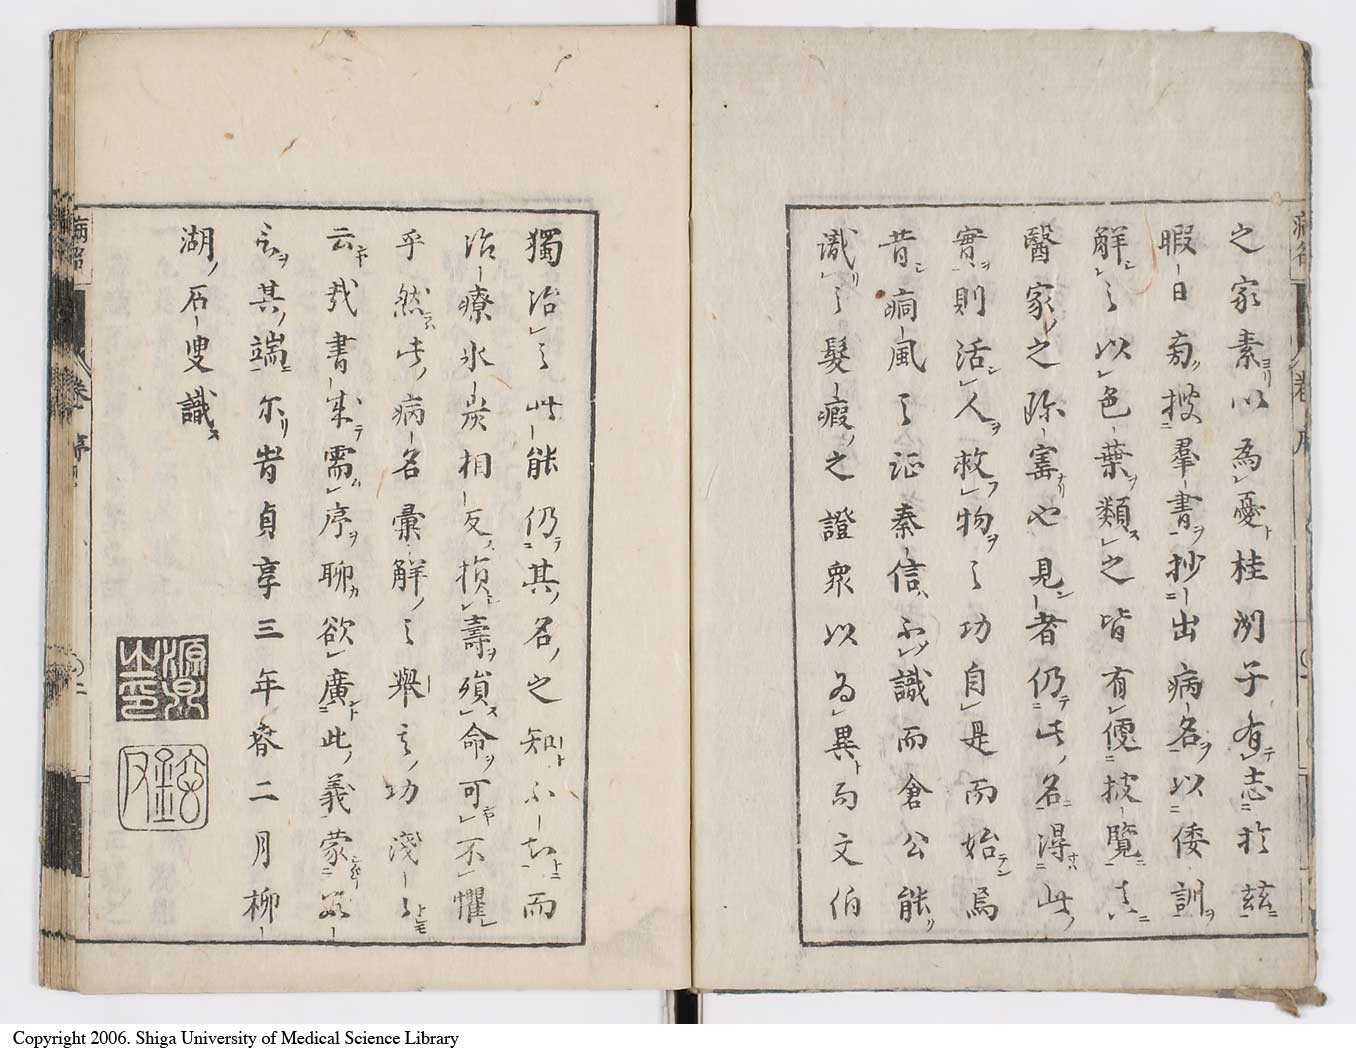 之家素以為憂桂洲子有志於茲
暇日旁披羣書抄出病名以倭訓
解之以色葉類之皆有便披覽真
醫家之珎寶也見者仍此名得此
實則活人救物之功自是而始焉
昔痌風之証秦信不識而倉公能
識之髮瘕之證衆以為異而文伯
獨治之此能仍其名之知不知而
治療氷炭相反損壽殞命可不懼
乎然此病名彙解之舉言功淺之
云哉書成需序聊欲廣此義蒙
言其端尔時貞享三年春二月柳
湖石叟識
Copyright 2006. Shiga University of Medical Science Library